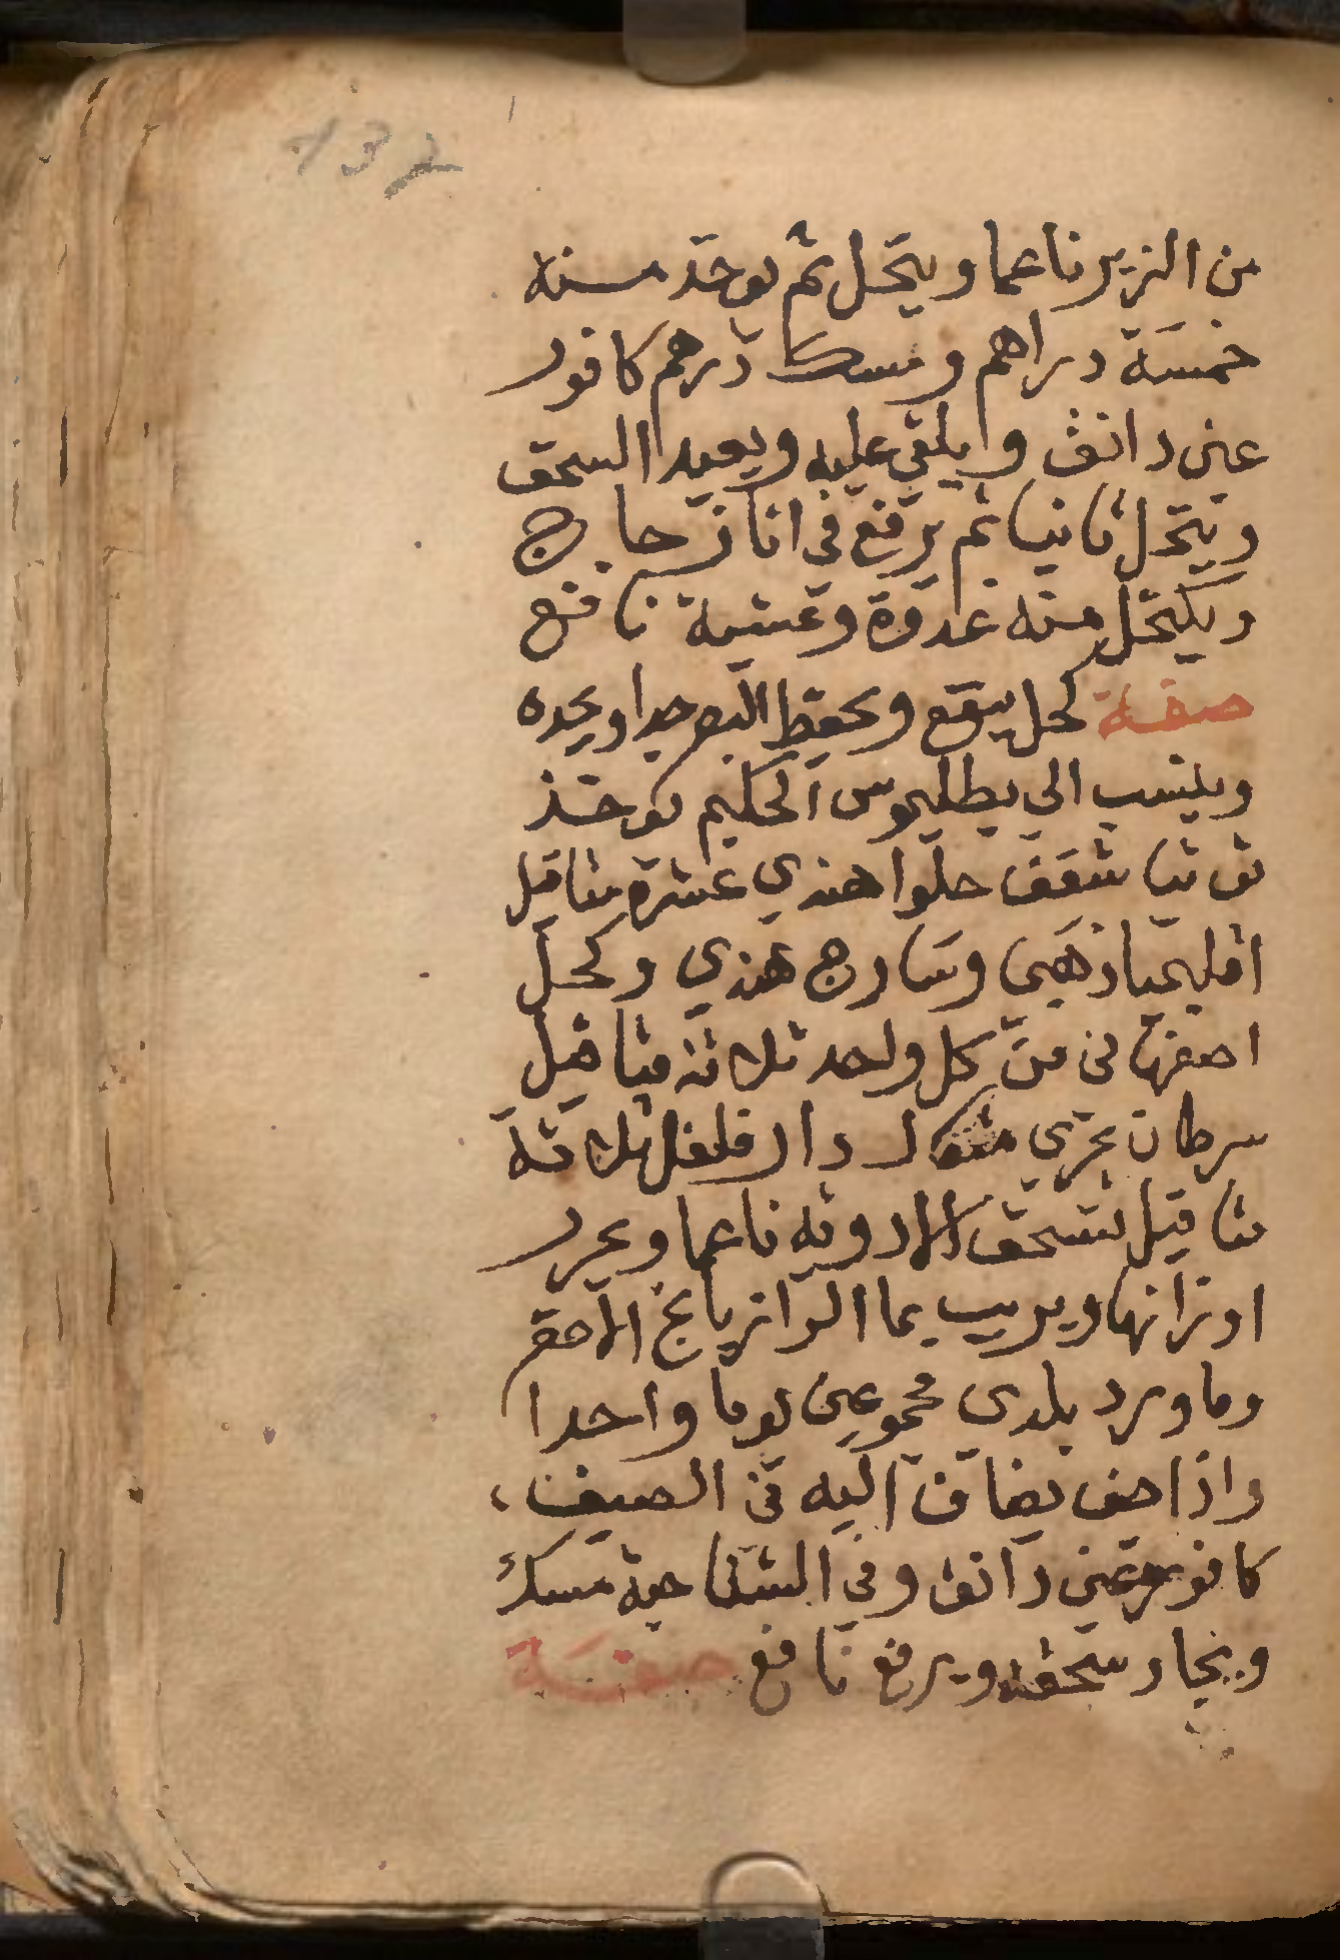 132
من الزير ناعما وينخل ثم يوخذ منه
خمسة دراهم ومسك درهم كافور
عن دانق وايلقي عليه ويعيد السحق
وينخل ثانيا ثم يرفع في انا زجاج
ويكتحل منه غدوة وعشية نافع
صفة كحل ينفع ويحفظ البصر جدا ويحده
وينسب الي بطليموس الحكيم يوخذ
توتيا شقف حلوا هندي عشرة مثاقيل
اقليميا ذهبي وسادج هندي وكحل
اصفهاني من كل واحد ثلاثة مثاقيل
سرطان بحري دار فلفل ثلاثة
مثاقيل تسحق الادويه ناعما ويحرر
اوزانها ويربب بما الرازيانج
وماورد بلدى مجموعين يوما واحدا
واذا جف يضاف اليه في الصيف
كافور دانق وفي الشتا حبة مسك
ويجاد سحقه ويرفع نافع صفة